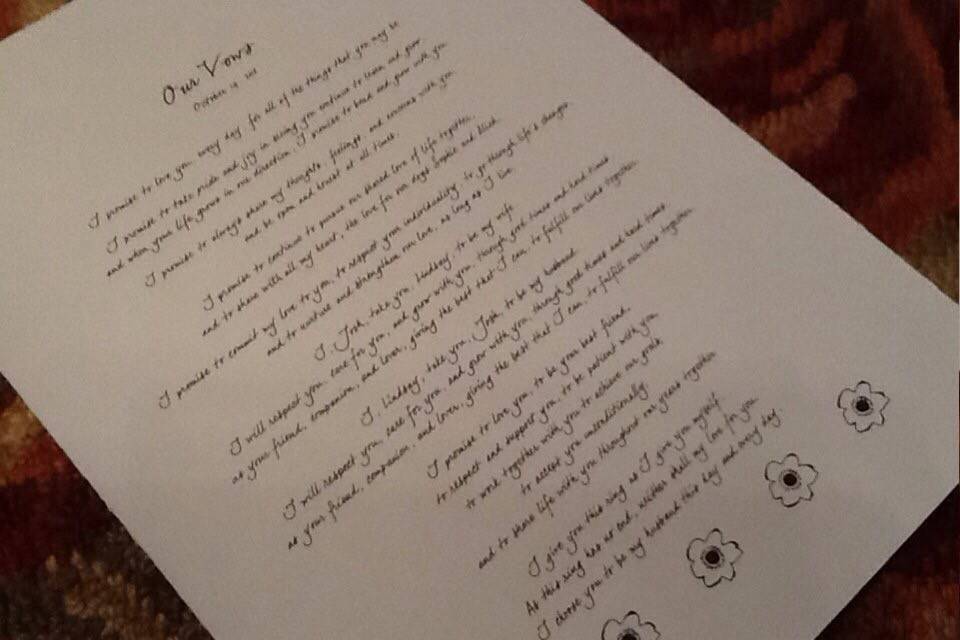 Our Vows
October 19
I promise to love you every day for all of the things that you may be
I promise to take pride and joy in seeing you continue to learn and grow
and when your life grows in one direction, I promise to bend and grow with you
I promise to always share my thoughts, feelings, and emotions with you
and be open and honest at all times.
I promise to continue to pursue our shared love of life together,
and to share with all my heart, the love for our dogs Sophie and
I promise to commit my love to you, to respect your individuality, to go through life's changes
and to nurture and strengthen our love, as long as I live
I, Josh, take you, Lindsey, to be my wife
I will respect you, care for you, and grow with you, through good times and hard times
as your friend, companion, and lover, giving the best that I can, to fulfill our lives together
I, Lindsey, take you, Josh, to be my husband
I will respect you, care for you, and grow with you, through good times and hard times
as your friend, companion, and lover, giving the best that I can, to fulfill our lives together
I promise to love you, to be your best friend,
to respect and support you, to be patient with you
to work together with you to achieve our goals
to accept you unconditionally
and to share life with you throughout our years together
I give you this ring as I give you myself
As this ring has no end, neither shall my love for you
I choose you to be my husband this day and every day.